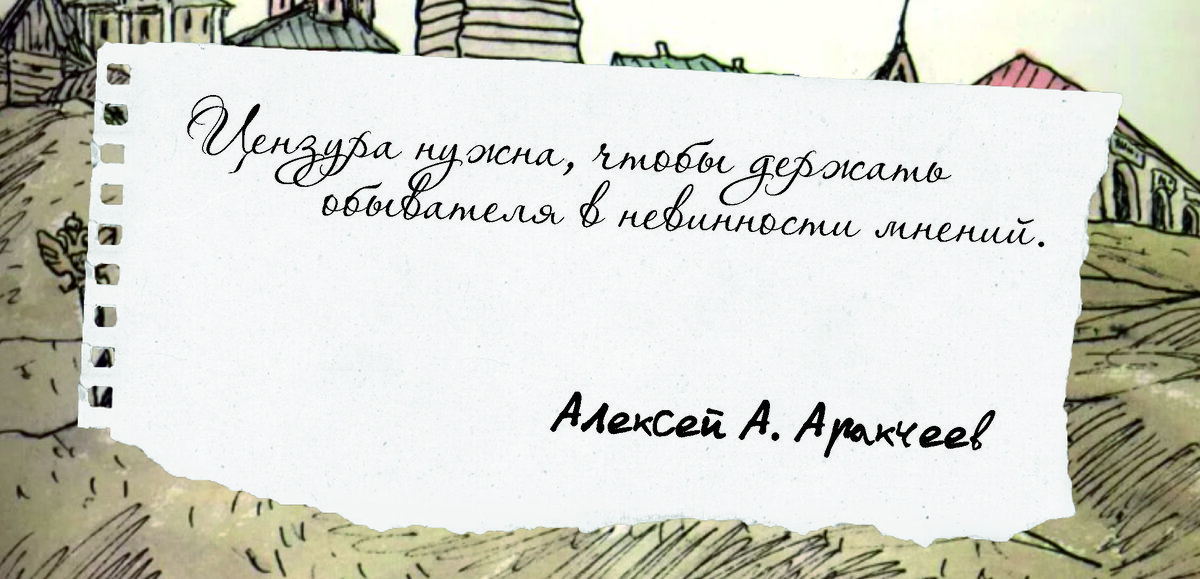 Цензура нужна, чтобы держать
обывателя в невинности мнений.
Алексей А. Аракчеев